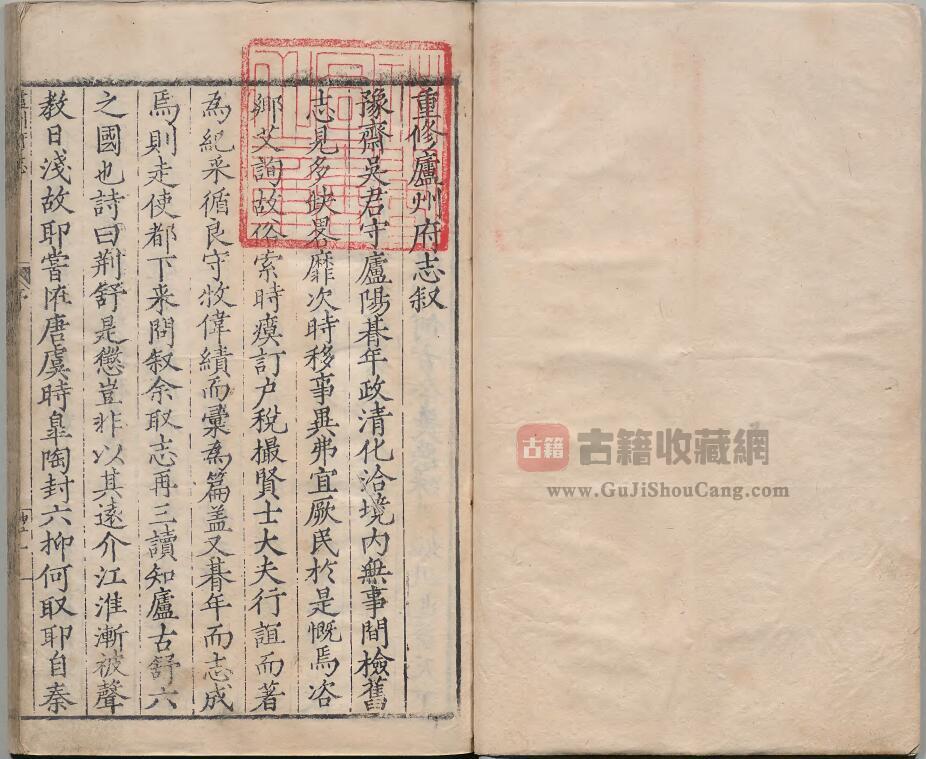 重修廬州府志叙
豫齋吳君守廬陽朞年政清化洽境内無事間檢舊
志見多缺畧靡次時移事異弗宜厥民於是慨焉咨
鄉艾詢故俗索時瘼訂户稅撮賢士大夫行誼而著
為紀采循良守牧偉績而彙為篇盖又朞年而志成
焉則走使都下来問叙余取志再三讀知廬古舒六
之國也詩曰荆舒是懲豈非以其遠介江淮漸被聲
教日淺故耶嘗阺唐虞時臯陶封六抑何取耶自秦
古籍
古籍收藏網
www.GuJiShouCang.com